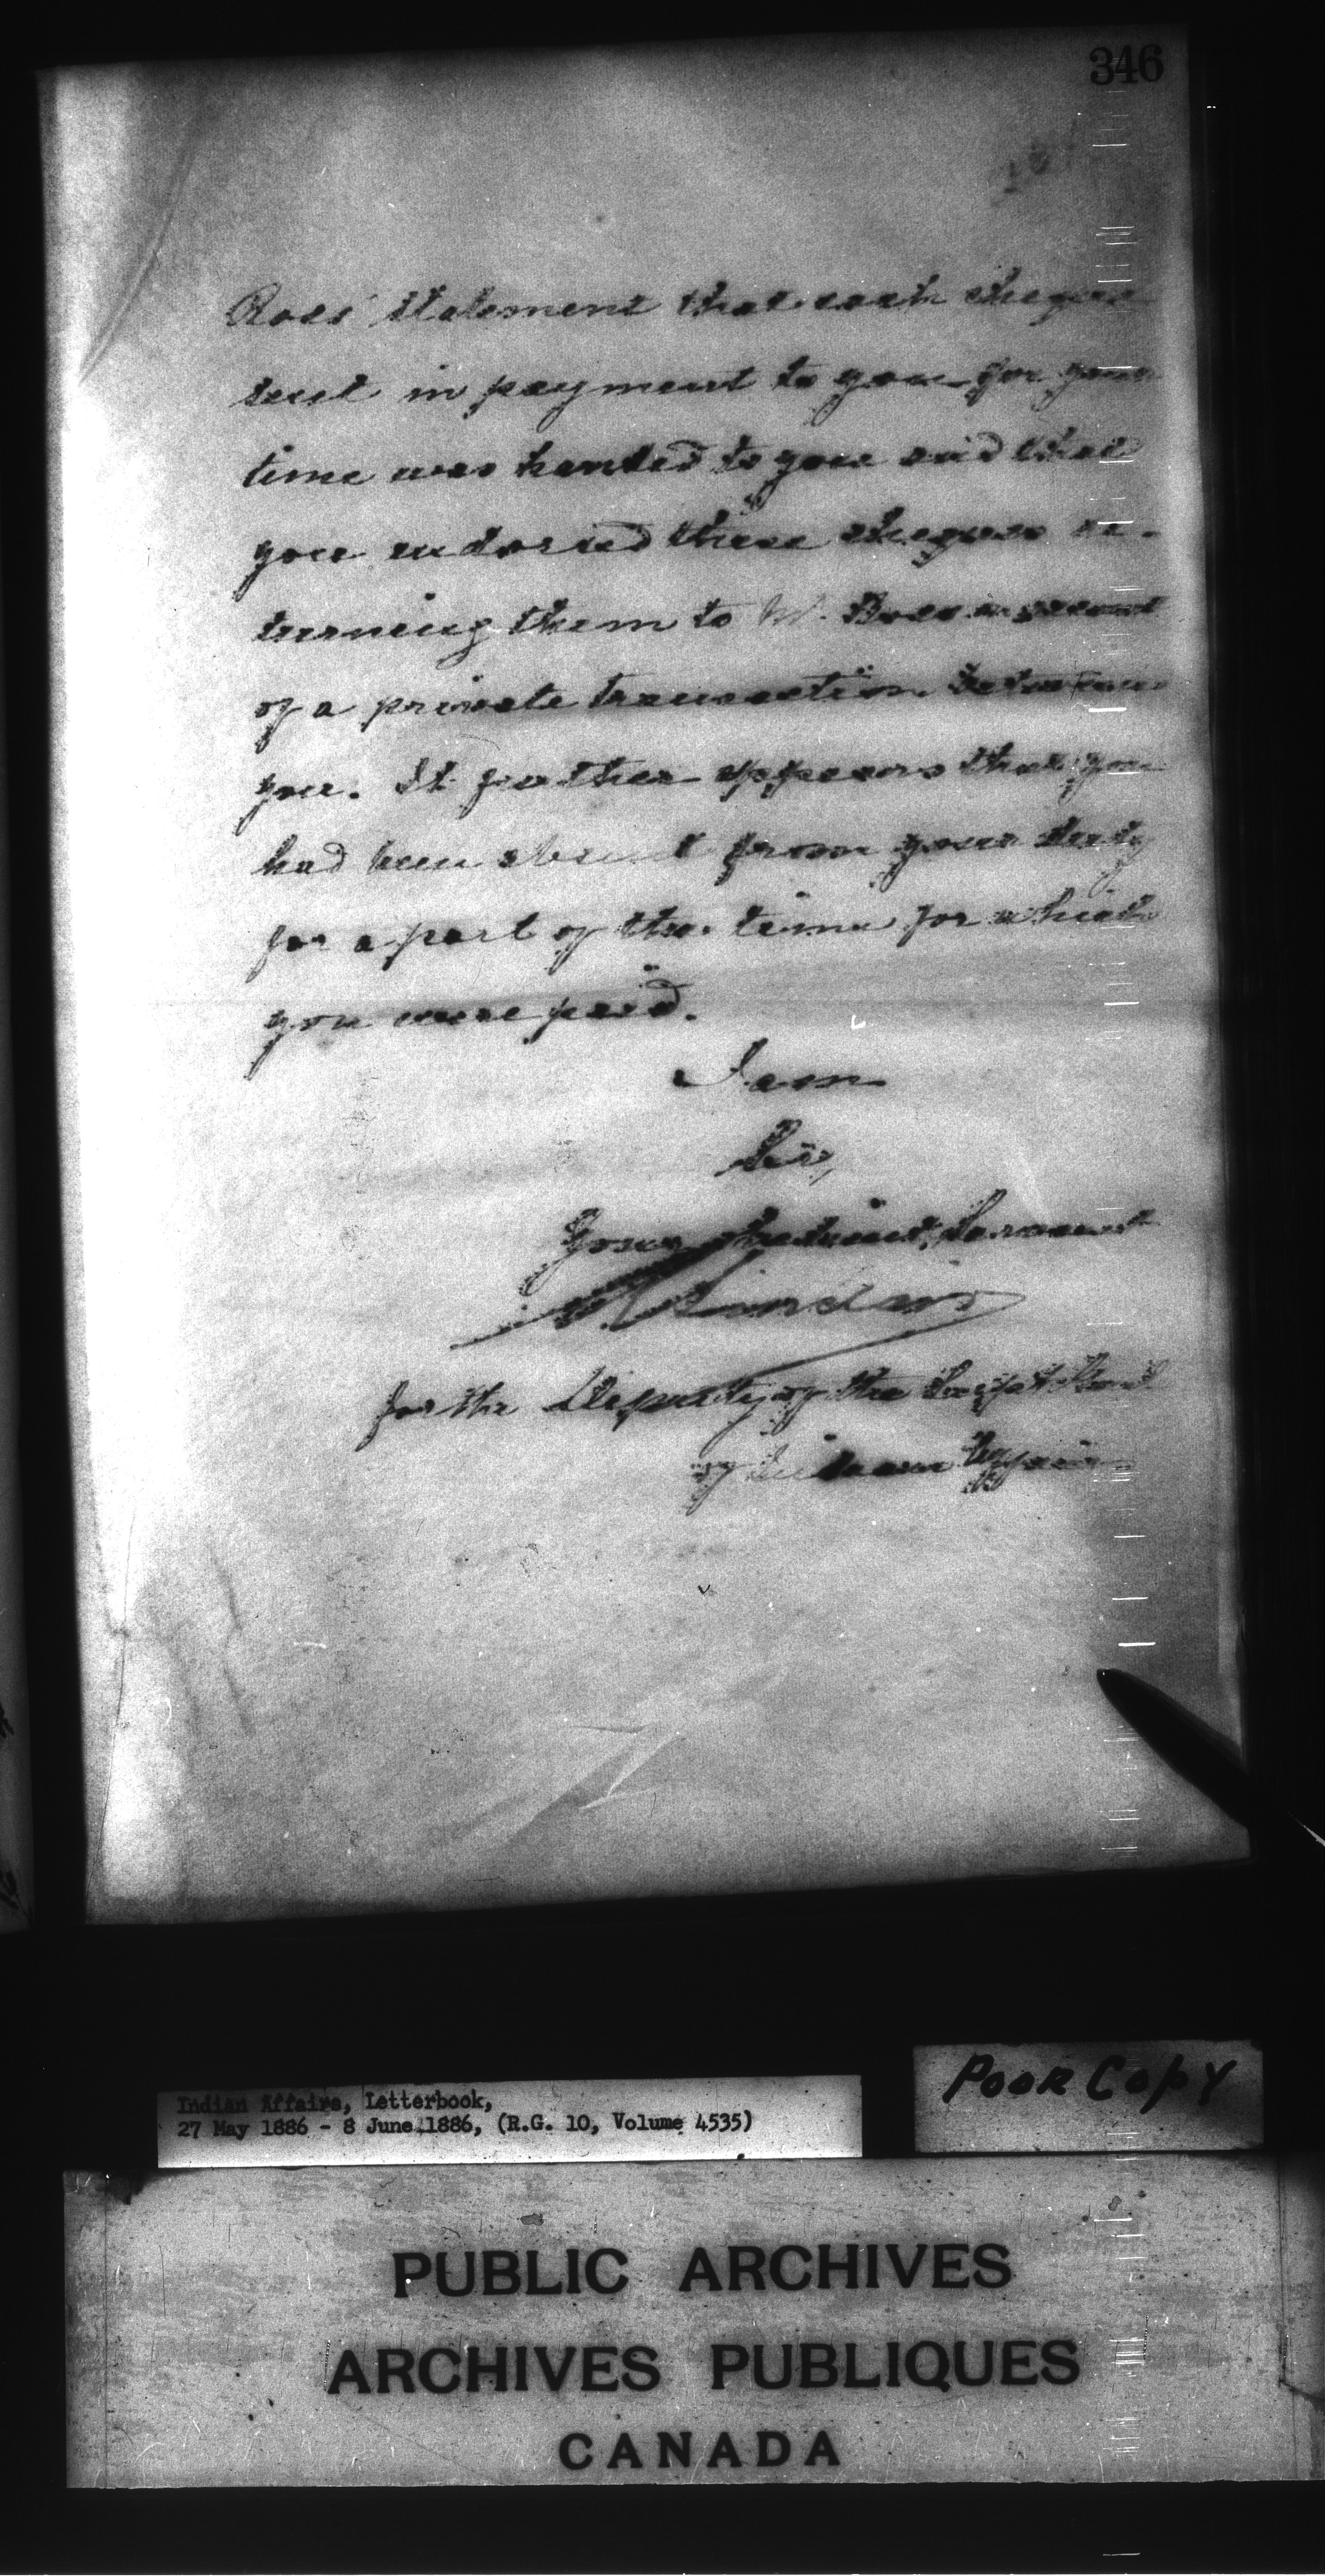 346
Ross' statement that each cheque
sent in payment to you for your
time was handed to you and that
you endorsed these cheques re-
turning them to Mr. Ross on account
of a private transaction between
you. It further appears that you
had been absent from your duty
for a part of the time for which
you were paid.
I am
Sir,
Your obedient Servant
Sinclair
for the Deputy of the Supt. Genl.
of Indian Affairs
Indian Affairs, Letterbook,
27 May 1886 - 8 June 1886, (R.G. 10, Volume 4535)
POOR COPY
PUBLIC ARCHIVES
ARCHIVES PUBLIQUES
CANADA